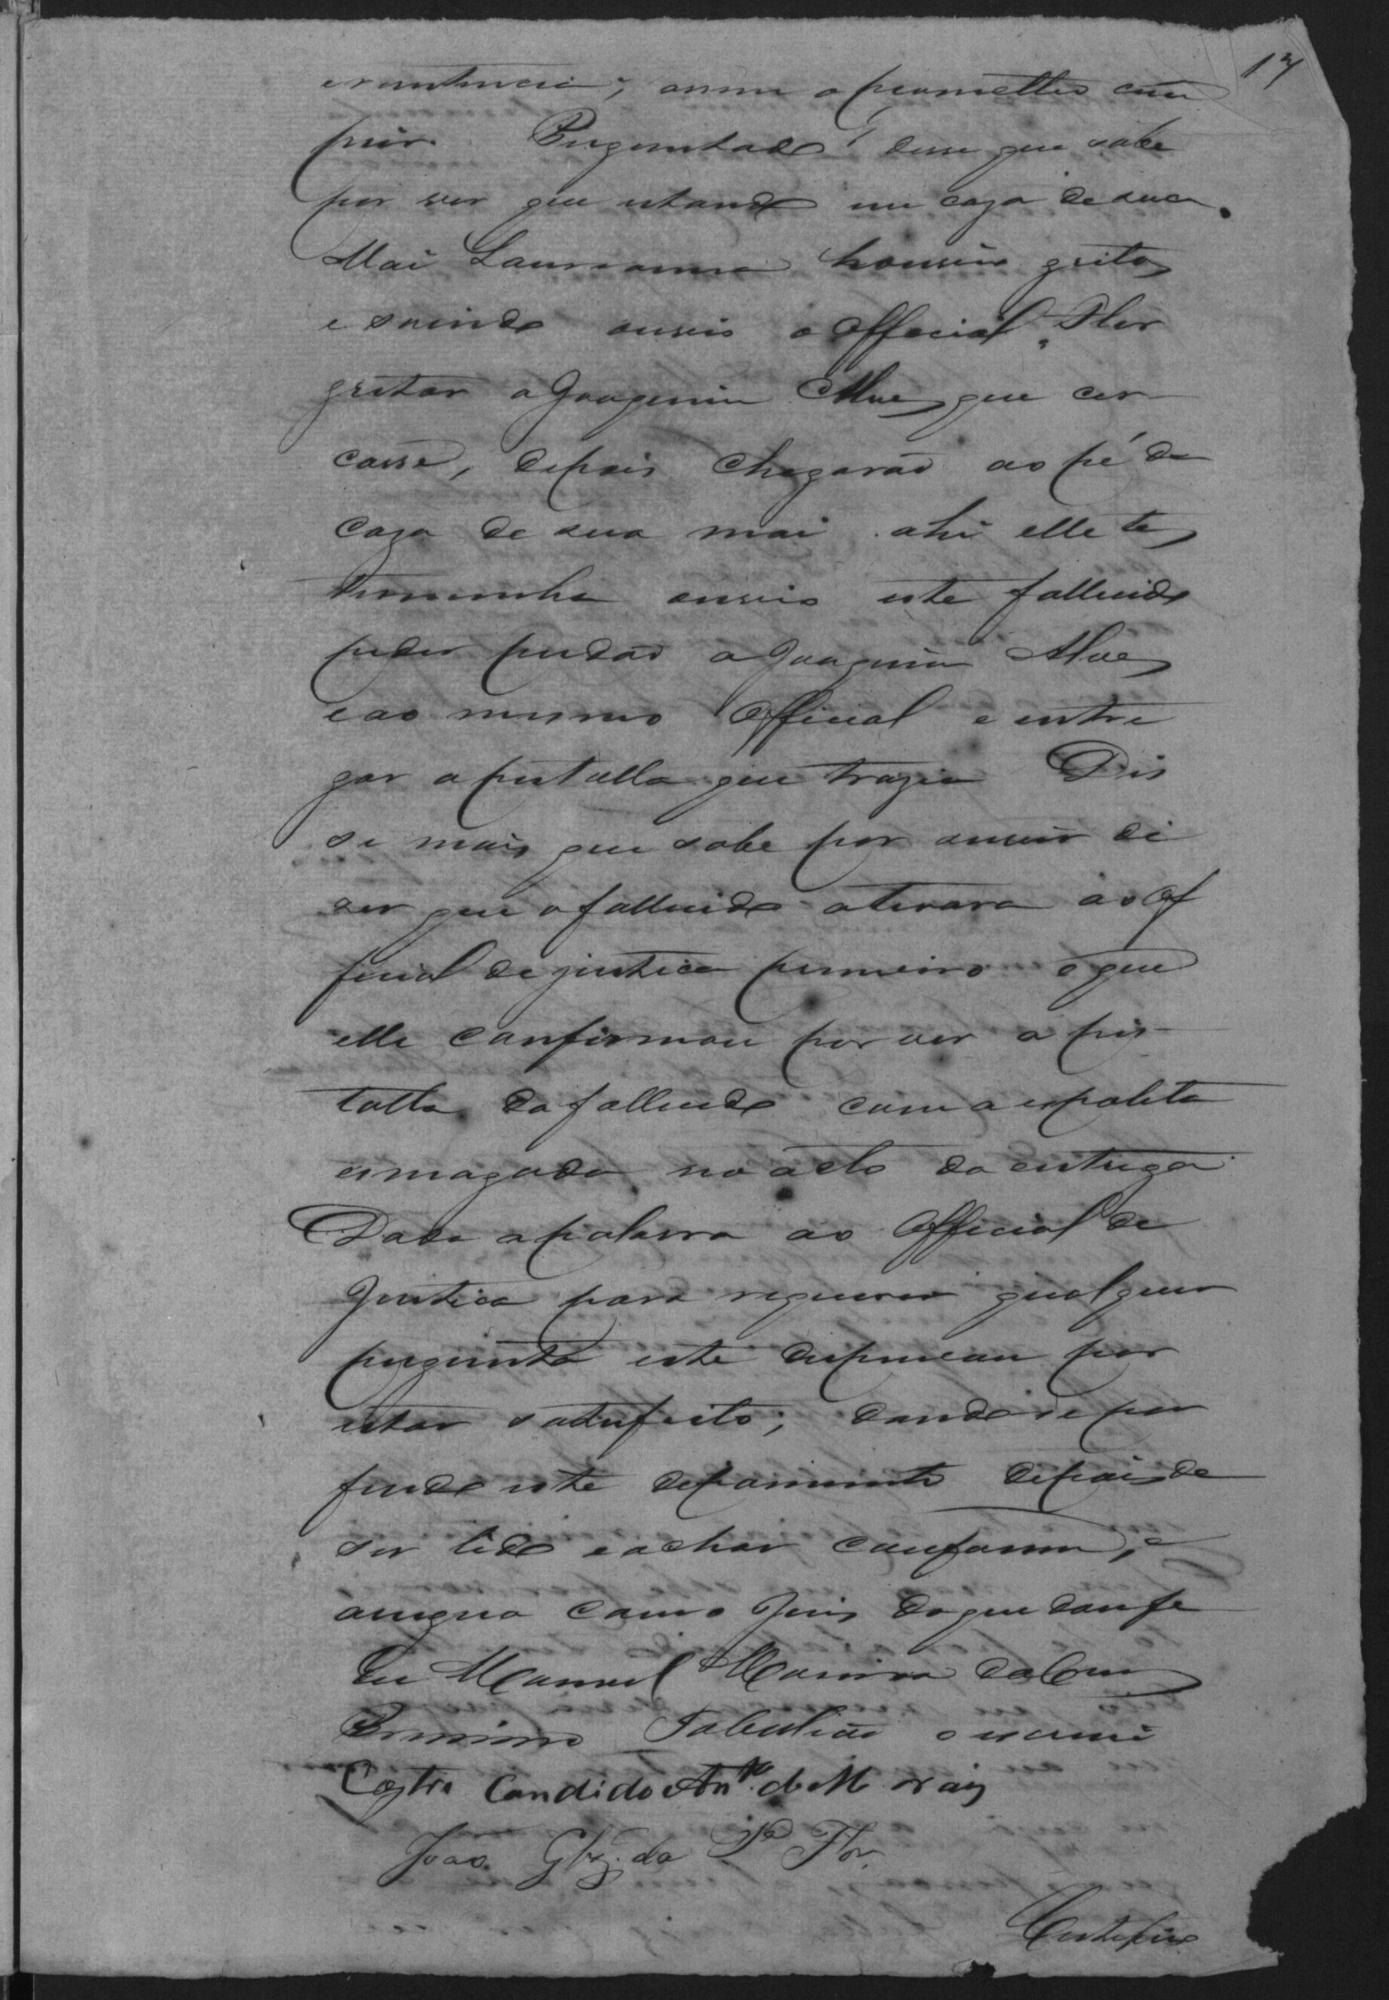 17
assim o prometteo cum
prir. Perguntado disse que sabe
por ver que estando em caza de sua
Mai Laurianna houvio gritos
e sainda ouvio o Official Flor
gritar a Joaquim Alves que cer-
casse, depois chegarão ao pé da
caza de sua mai ahi elle tes
timunha ouvio este fallecido
pedir perdão a Joaquim Alves
e ao mesmo Official e entre
gar a pistolla que trazia Dis
se mais que sabe por ouvir di
ser que o fallecido atirara ao Of
ficial de justica primeiro o que
elle confirmou por ver a pis-
tolla do fallecido com a espoleta
esmagada no acto da entrega.
Dada a palavra ao Official de
Justica para requerer qualquer
pergunta este dispensou por
estar satisfeito; dando se por
findo este depoimento depois de
ser lido e achar conforme, e
assigna com o Juis do que dou fe
Eu Manoel Moreira da Cruz
Tabelião o escrevi
Castro Candido Antº de Morais
João Glz. da Sª Flor.
Certifico